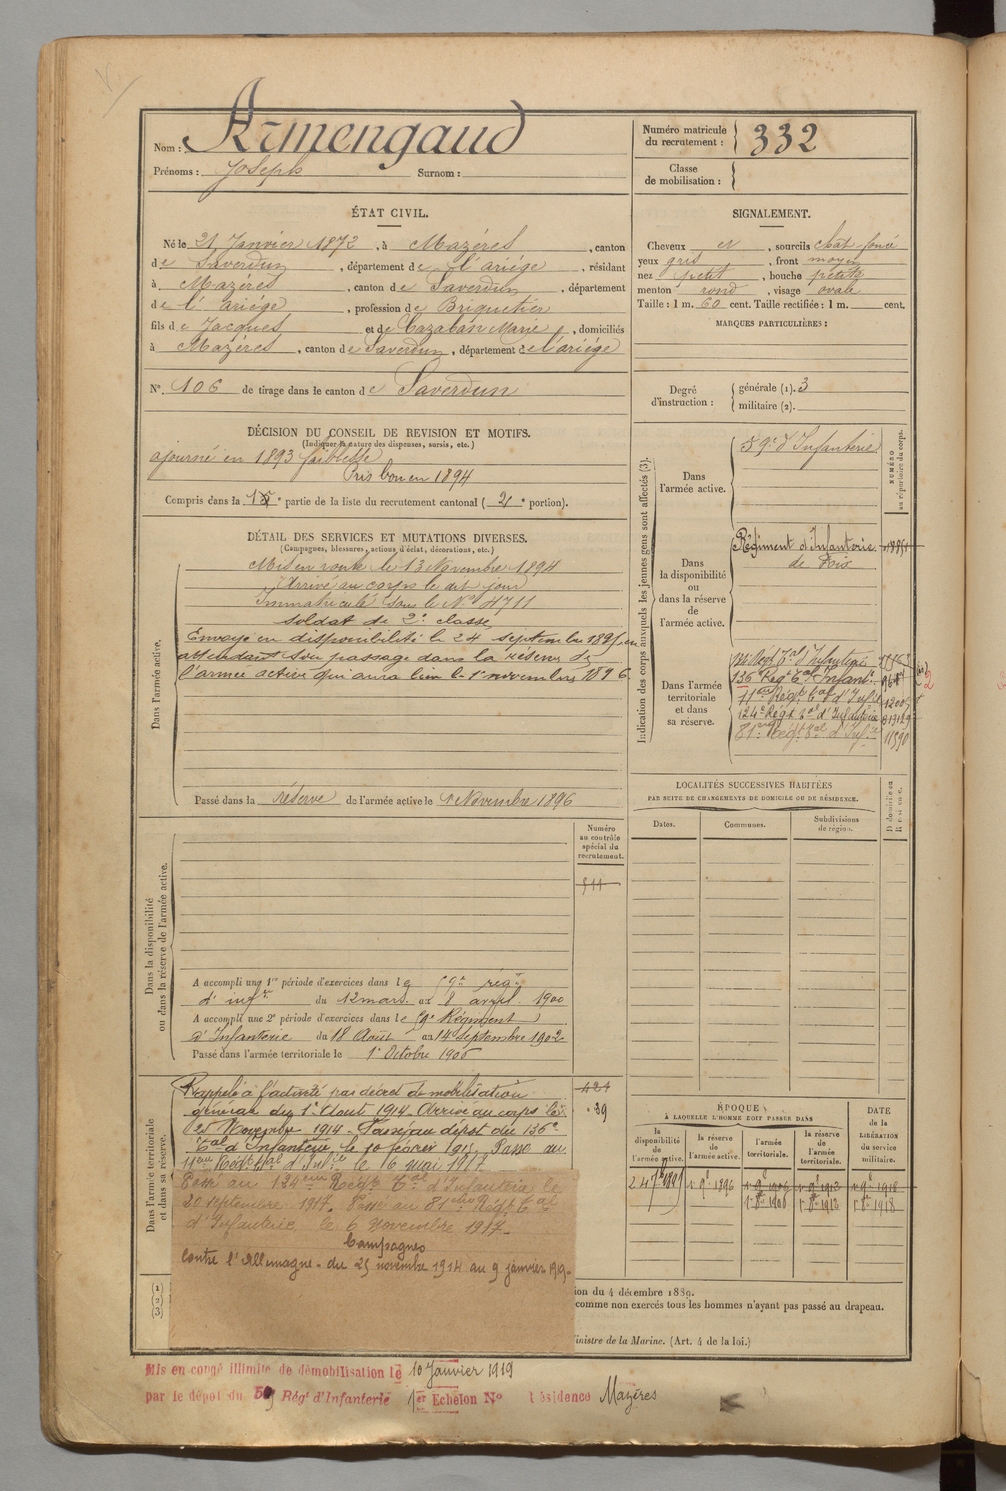 Nom : Armengaud
Prénoms : Joseph Surnom :
Numéro matricule du recrutement : 332
Classe de mobilisation :
ÉTAT CIVIL.
Né le 21 Janvier 1872, à Mazéres, canton
de Saverdun, département de l'ariége, résidant
à Mazéres, canton de Saverdun, département
de l'ariége, profession de Briquetier
fils de Jacques et de Cazaban Marie, domiciliés
à Mazéres, canton de Saverdun, département de l'ariége
N° 106 de tirage dans le canton de Saverdun
SIGNALEMENT.
Cheveux et, sourcils chat-foncé
yeux gris, front moyen
nez petit, bouche petite
menton rond, visage ovale
Taille : 1 m. 60 cent. Taille rectifiée : 1 m. cent.
MARQUES PARTICULIÈRES :
Degré d'instruction : générale (1). 3
militaire (2).
DÉCISION DU CONSEIL DE REVISION ET MOTIFS.
(Indiquer la nature des dispenses, sursis, etc.)
ajourné en 1893 faiblesse
Pris bon en 1894
Compris dans la partie de la liste du recrutement cantonal ( 2 e portion).
DÉTAIL DES SERVICES ET MUTATIONS DIVERSES.
(Campagnes, blessures, actions d'éclat, décorations, etc.)
Dans l'armée active.
Mis en route le 13 Novembre 1894
Arrivé au corps le dit jour
Immatriculé sous le N° 4711
soldat de 2e classe
Envoyé en disponibilité le 24 septembre 1895, en
attendant son passage dans la réserve de
l'armée active qui aura lieu le 1er novembre 1896
Passé dans la réserve de l'armée active le 1 Novembre 1896
Indication des corps auxquels les jeunes gens sont affectés (3).
NUMÉRO au répertoire du corps.
Dans l'armée active.
59e d'Infanterie
Dans la disponibilité ou dans la réserve de l'armée active.
Régiment d'Infanterie
de Foix
Dans l'armée territoriale et dans sa réserve.
136e Régt Tal Infanterie
11ème Régt Tal d'Infie
124e Régt Tal d'Infanterie
81ème Régt Tal d'Infie 11590
LOCALITÉS SUCCESSIVES HABITÉES
PAR SUITE DE CHANGEMENTS DE DOMICILE OU DE RÉSIDENCE.
Dates. Communes. Subdivisions de région.
Dans la disponibilité ou dans la réserve de l'armée active.
Numéro au contrôle spécial du recrutement.
A accompli une 1re période d'exercices dans le 59e régt
d'infie du 12 mars au 8 avril 1900
A accompli une 2e période d'exercices dans le 59e Régiment
d'Infanterie du 18 Août au 14 Septembre 1902
Passé dans l'armée territoriale le 1er Octobre 1906
Dans l'armée territoriale et dans sa réserve.
Rappelé à l'activité par décret de mobilisation
générale du 1er Août 1914. Arrivé au corps le
25 Novembre 1914. Passé au dépot du 136e
Tal d'Infanterie, le 10 février 1915. Passé au
11ème Régt Tal d'Infie le 16 mai 1917
Passé au 124eme Régt Tal d'Infanterie le
20 septembre 1917. Passé au 81eme Régt Tal
d'Infanterie le 6 Novembre 1917.
Campagnes
Contre l'Allemagne. du 25 novembre 1914 au 9 janvier 1919.
421
39
ÉPOQUE
À LAQUELLE L'HOMME DOIT PASSER DANS
la disponibilité de l'armée active.
la réserve de l'armée active.
l'armée territoriale.
la réserve de l'armée territoriale.
DATE de la LIBÉRATION du service militaire.
24 7bre 1895 1 9bre 1896 1 9bre 1906 1 9bre 1912 1 9bre 1918
1 8bre 1906 1 8bre 1912 1 8bre 1918
(1)
(2)
(3)
ion du 4 décembre 1889.
comme non exercés tous les hommes n'ayant pas passé au drapeau.
inistre de la Marine. (Art. 4 de la loi.)
Mis en congé illimité de démobilisation le 10 Janvier 1919
par le dépôt du 59 Régt d'Infanterie 1er Echelon N° Résidence Mazères